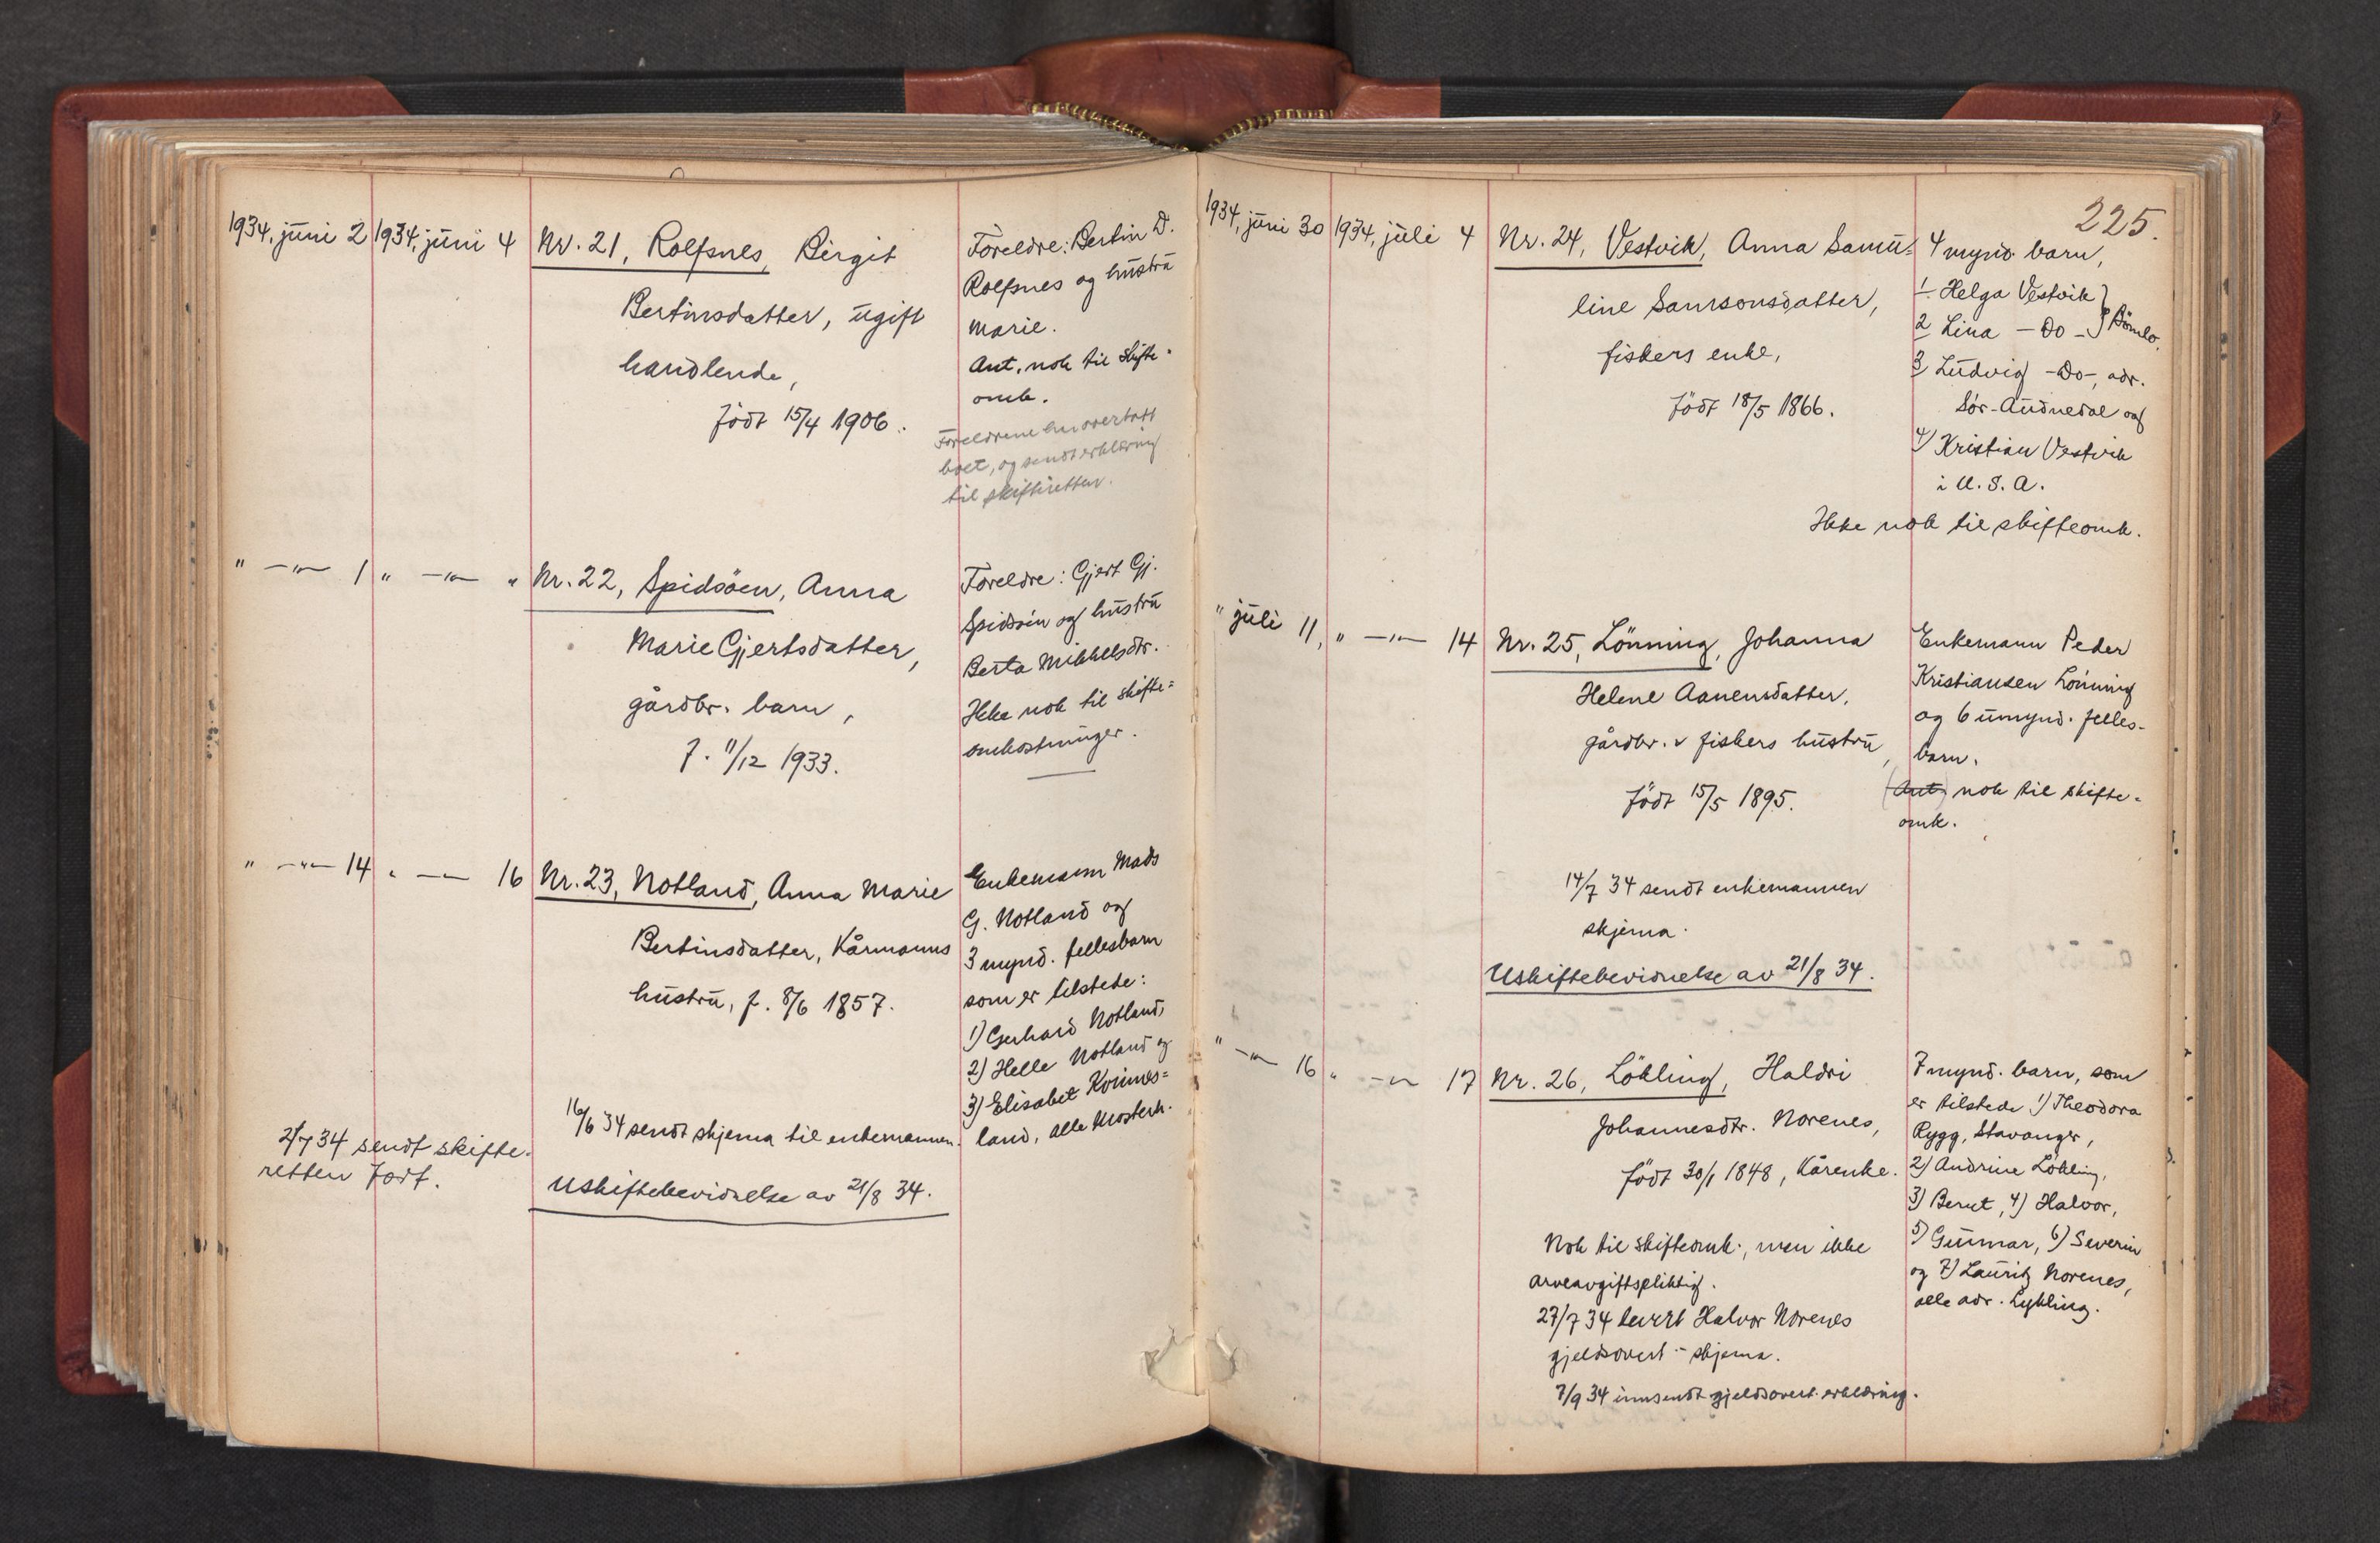 1934, juni 2 1934, juni 4 Nr. 21, Rolfsnes, Birgit
Bertinsdatter, ugift
handlende,
født 15/4 1906.
Foreldre: Bertin D.
Rolfsnes og hustru
Marie.
Ant. nok til skifte-
omk.
Foreldrene har overtatt
boet, og sendt erklæring
til skifteretten.
" —"— 1 " —"— " Nr. 22, Spidsøen, Anna
Marie Gjertsdatter,
gårdbr. barn,
f. 11/12 1933.
Foreldre: Gjert Gj.
Spidsøen og hustru
Berta Mikkelsdtr.
Ikke nok til skifte=
omkostninger.
" —"— 14 " —"— 16 Nr. 23, Notland, Anna Marie
Bertinsdatter, Kårmanns
hustru, f. 8/6 1857.
Enkemann Mads
G. Notland og
3 mynd. fellesbarn
som er tilstede:
1) Gerhard Notland,
2) Helle Notland og
3) Elisabet Kvinnes=
land, alle Mosterh.
16/6 34 sendt skjema til enkemannen.
2/7 34 sendt skifte-
retten fort.
Uskiftebevidnelse av 21/8 34.
225.
1934, juni 30 1934, juli 4 Nr. 24, Vestvik, Anna Samu=
line Samsonsdatter,
fiskers enke,
født 18/5 1866.
4 mynd. barn,
1. Helga Vestvik }
2 Lina — Do — } Bömlo.
3 Ludvig —Do—, adr.
Sör-Audnedal og
4) Kristian Vestvik
i U. S. A.
Ikke nok til skifteomk.
" juli 11, " —"— 14 Nr. 25, Lönning, Johanna
Helene Aanensdatter,
gårdbr. & fiskers hustru,
født 15/5 1895.
Enkemann Peder
Kristiansen Lönning
og 6 umynd. felles-
barn.
(Ant.) nok til skifte-
omk.
14/7 34 sendt enkemannen
skjema.
Uskiftebevidnelse av 21/8 34.
" —"— 16 " —"— 17 Nr. 26, Lökling, Haldri
Johannesdtr. Norenes,
født 30/1 1848, Kårenke.
7 mynd. barn, som
er tilstede 1) Theodora
Rygg, Stavanger,
2) Andrine Lökling,
3) Berut, 4) Halvor,
5) Gunnar, 6) Severin
og 7) Lauritz Norenes,
alle adr. Lykling.
Nok til skifteomk., men ikke
arveavgiftspliktig.
27/7 34 levert Halvor Norenes
gjeldsovert.- skjema.
7/9 34 innsendt gjeldsovert. erklæring.